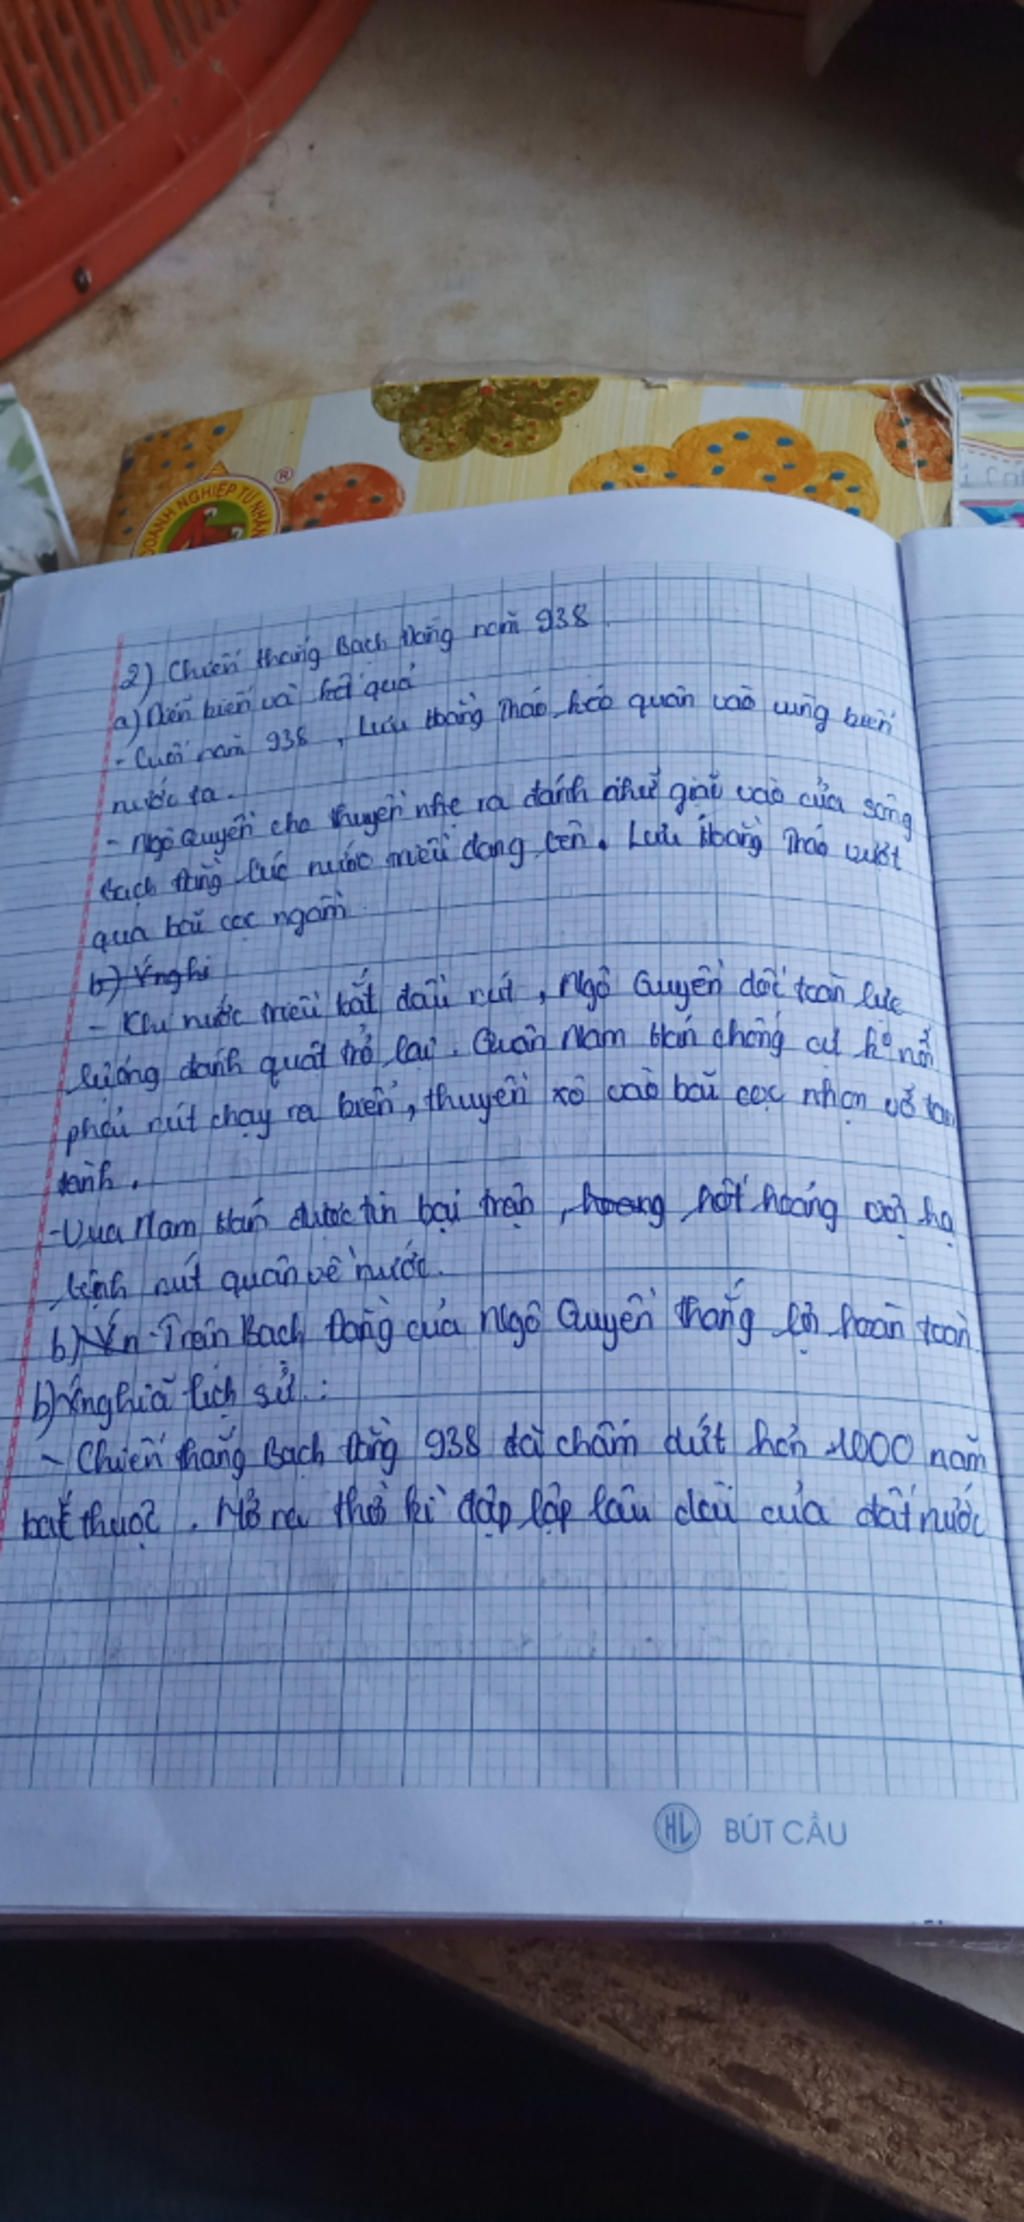 DOANH NGHIỆP TƯ NHÂN
®
2) Chiến thắng Bạch Đằng năm 938
a) Diễn biến và kết quả
- Cuối năm 938, Lưu Hoằng Tháo kéo quân vào vùng biển
nước ta.
- Ngô Quyền cho thuyền nhẹ ra đánh nhử giặc vào cửa sông
Bạch Đằng lúc nước triều dâng lên. Lưu Hoằng Tháo vượt
qua bãi cọc ngầm
b) Ý nghi
- Khi nước triều bắt đầu rút, Ngô Quyền dốc toàn lực
lượng đánh quật trở lại. Quân Nam Hán chống cự ko nổi
phải rút chạy ra biển, thuyền xô vào bãi cọc nhọn vỡ tan
tành.
- Vua Nam Hán được tin bại trận, hoang hốt hoảng vội hạ
lệnh rút quân về nước.
b) Ýn - Trận Bạch Đằng của Ngô Quyền thắng lợi hoàn toàn
b) Ý nghĩa lịch sử :
- Chiến thắng Bạch Đằng 938 đã chấm dứt hơn 1000 năm
bắt thuộc. Mở ra thời kì độc lập lâu dài của đất nước
HL BÚT CẦU